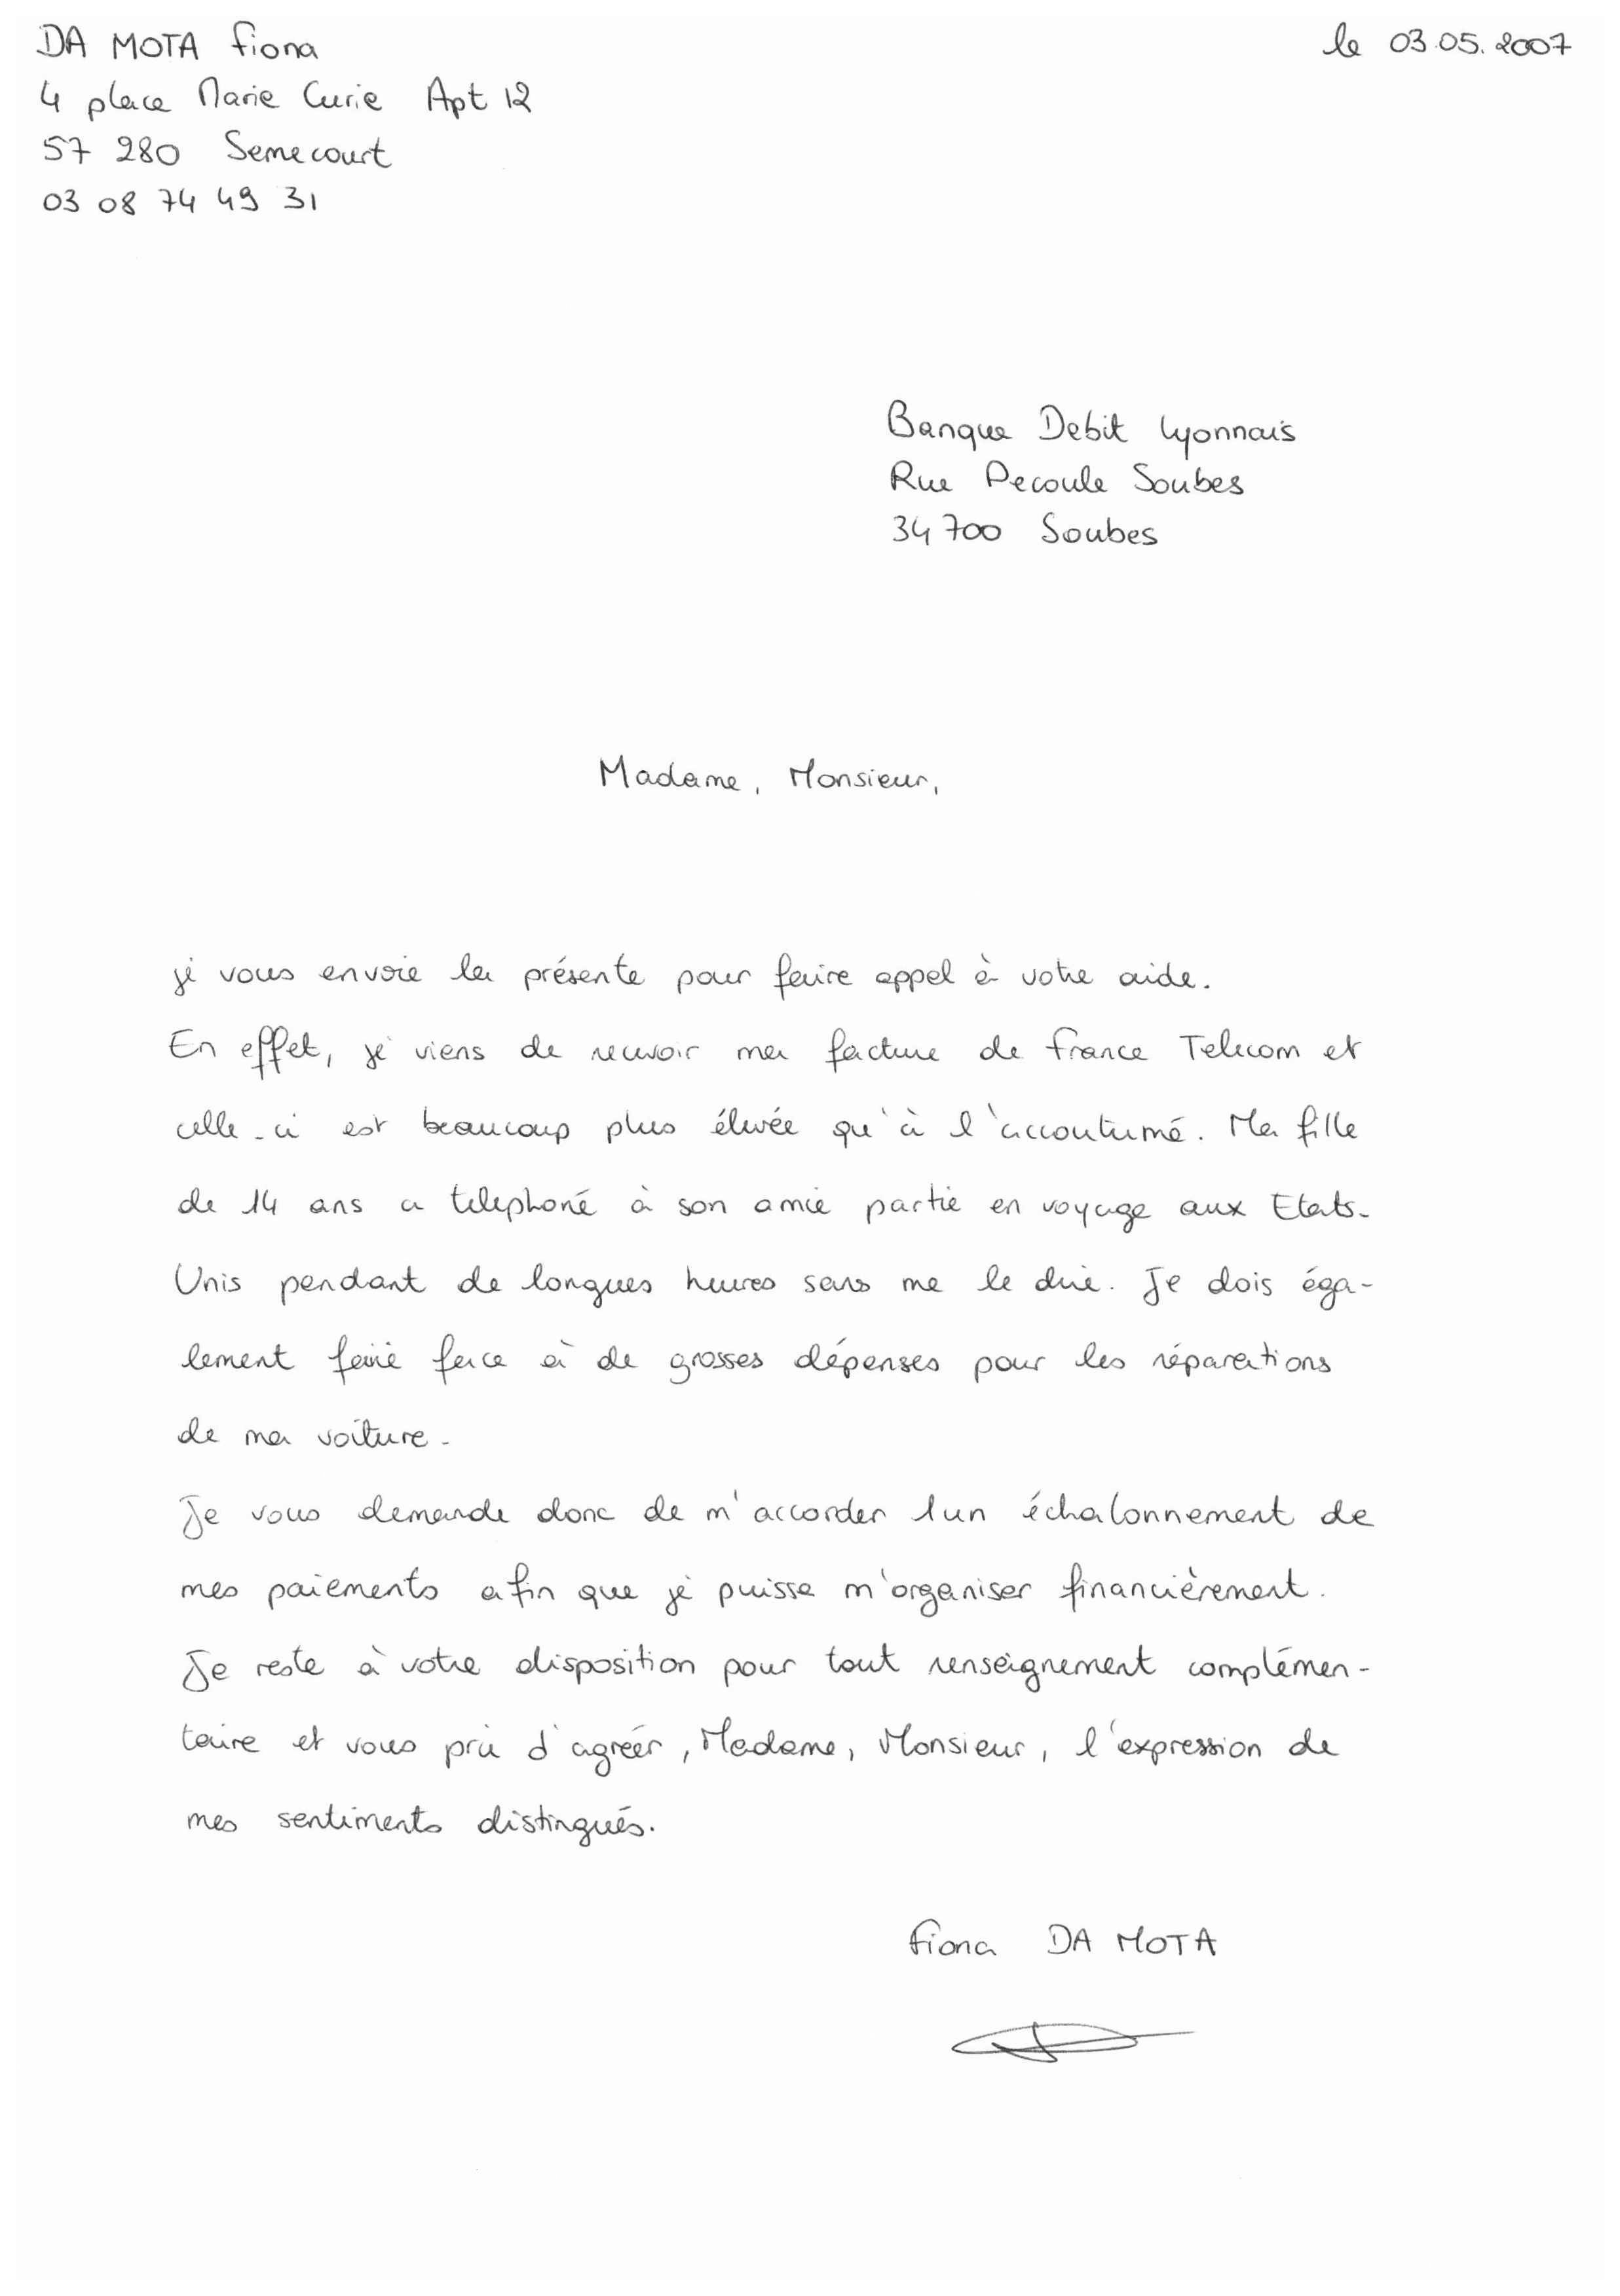 DA MOTA Fiona
le 03.05.2007
4 place Marie Curie Apt 12
57 280 Semecourt
03 08 74 49 31
Banque Debit Lyonnais
Rue Pecoule Soubes
34 700 Soubes
Madame, Monsieur,
je vous envoie la présente pour faire appel à votre aide.
En effet, je viens de recevoir ma facture de France Telecom et
celle-ci est beaucoup plus élevée qu'à l'accoutumé. Ma fille
de 14 ans a telephoné à son amie partie en voyage aux Etats-
Unis pendant de longues heures sans me le dire. Je dois éga-
lement faire face à de grosses dépenses pour les réparations
de ma voiture.
Je vous demande donc de m'accorder un échalonnement de
mes paiements afin que je puisse m'organiser financièrement.
Je reste à votre disposition pour tout renseignement complémen-
taire et vous prie d'agréer, Madame, Monsieur, l'expression de
mes sentiments distingués.
Fiona DA MOTA